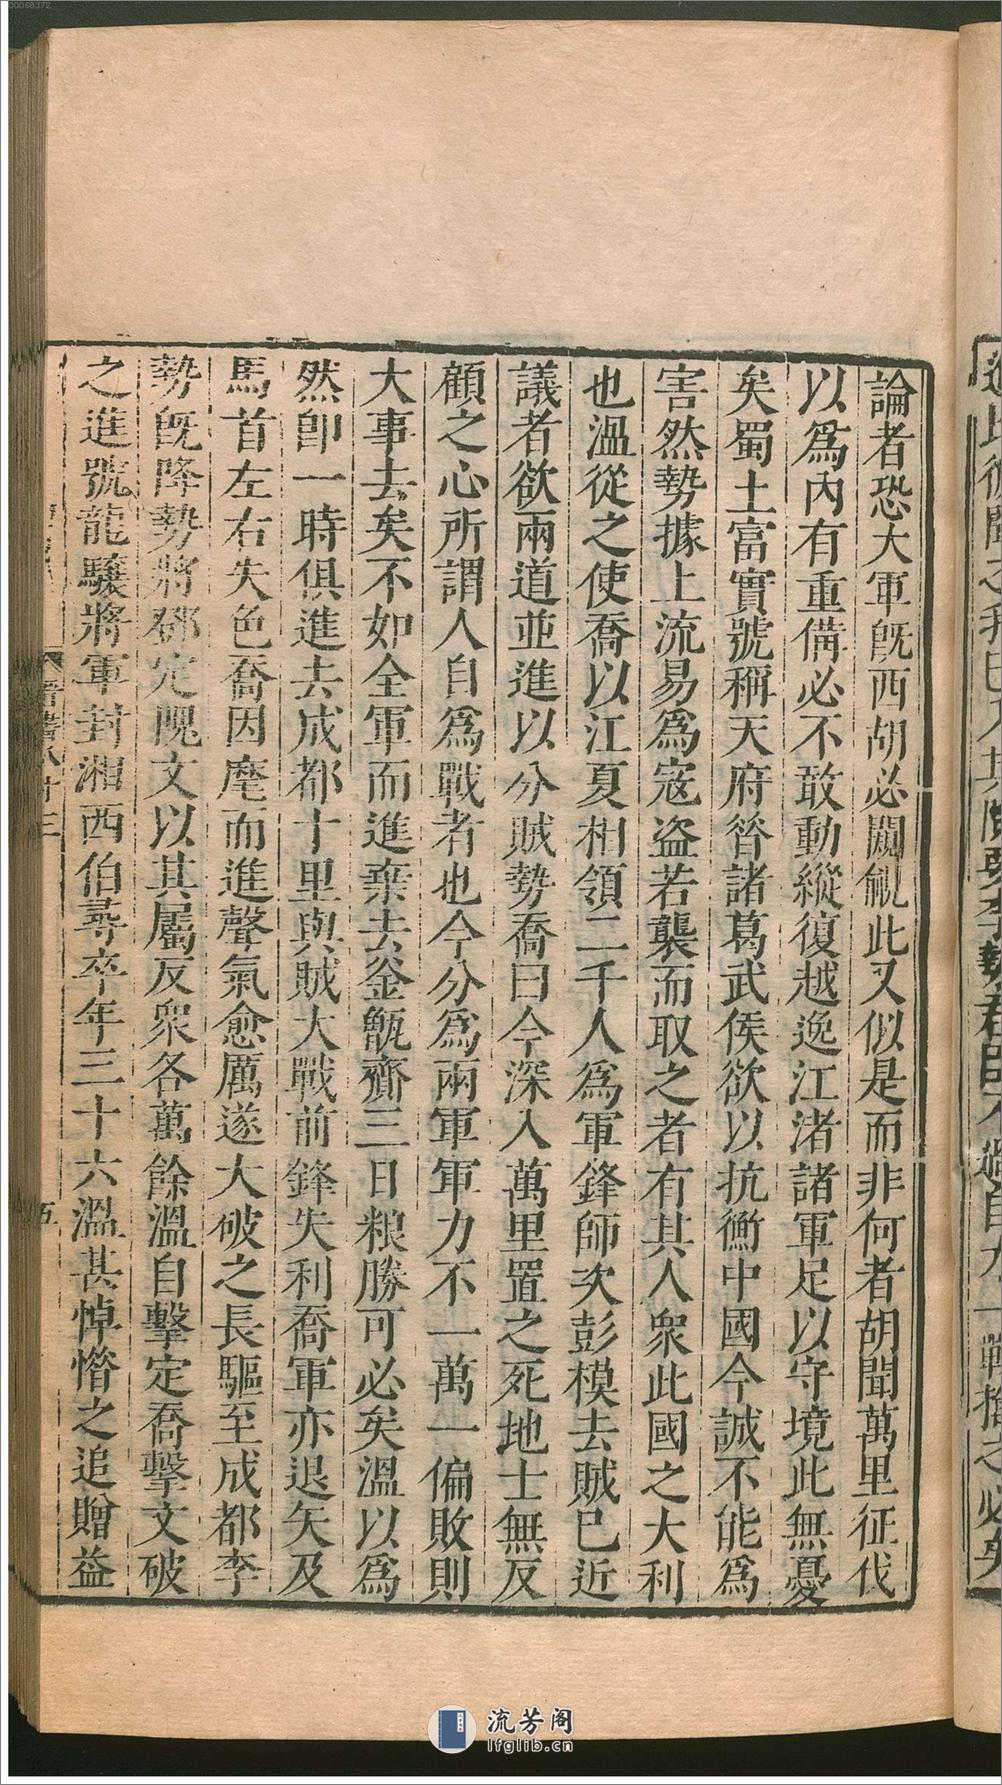 論者恐大軍旣西胡必闚覦此又似是而非何者胡聞萬里征伐
以爲內有重備必不敢動縱復越逸江渚諸軍足以守境此無憂
矣蜀土富實號稱天府昝諸葛武侯欲以抗衡中國今誠不能爲
害然勢據上流易爲寇盜若襲而取之者有其人衆此國之大利
也溫從之使喬以江夏相領二千人爲軍鋒師次彭模去賊已近
議者欲兩道並進以分賊勢喬曰今深入萬里置之死地士無反
顧之心所謂人自爲戰者也今分爲兩軍軍力不一萬一偏敗則
大事去矣不如全軍而進棄去釜甑齎三日粮勝可必矣溫以爲
然卽一時俱進去成都十里與賊大戰前鋒失利喬軍亦退矢及
馬首左右失色喬因麾而進聲氣愈厲遂大破之長驅至成都李
勢旣降勢將鄧定隗文以其屬反衆各萬餘溫自擊定喬擊文破
之進號龍驤將軍封湘西伯尋卒年三十六溫甚悼惜之追贈益
晉書八十三
五
流芳阁
lfglib.cn
00068372